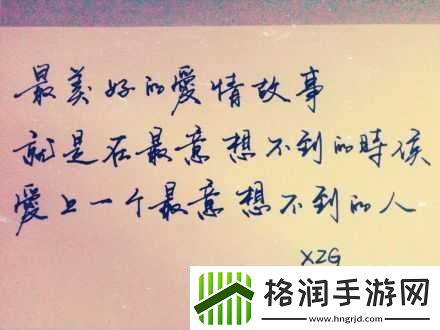 最美好的愛情故事
就是在最意想不到的時候
愛上一个最意想不到的人
XZG
格润手游网
www.hngrjd.com